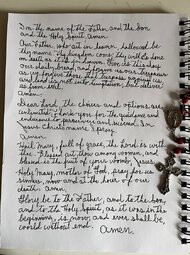 In the name of the Father, and the Son
and the Holy Spirit. Amen.
Our Father, who art in heaven, hallowed be
thy name. Thy kingdom come, thy will be done
on earth as it is in heaven. Give us this day
our daily bread and forgive us our trespasses
as we forgive those that trespass against us
and lead us not into temptation, but deliver
us from evil.
Amen.
Dear Lord, the choices and options are
Lord, for the guidance and
I need. In
Jesus Christ's name I pray.
Amen.
Hail Mary, full of grace, the Lord is with
thee. Blessed art thou among women, and
blessed is the fruit of your womb, Jesus.
Holy Mary, mother of God, pray for us
sinner, now and at the hour of our
death. Amen.
Glory be to the Father, and to the Son
and to the Holy Spirit, as it was in the
beginning, is now, and ever shall be,
world without end.
Amen.